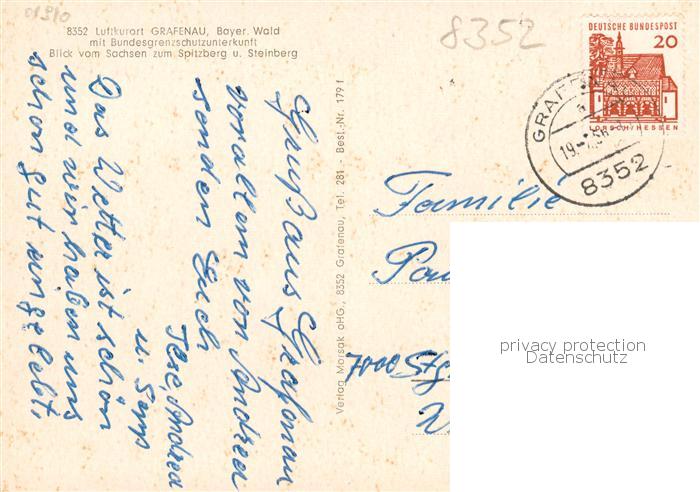 01910
8352
8352 Luftkurort GRAFENAU, Bayer. Wald
mit Bundesgrenzschutzunterkunft
Blick vom Sachsen zum Spitzberg u. Steinberg
DEUTSCHE BUNDESPOST
20
LORSCH/HESSEN
GRAFENAU
19.-7.66
8352
Gruß aus Grafenau
vorallem von Andrea
senden Euch
Ilse, Andrea
u. Sepp
Das Wetter ist schön
und wir haben uns
schon gut eingelebt.
Verlag Morsak oHG., 8352 Grafenau, Tel. 281 - Best.-Nr. 179 f
Familie
7000 Stg
privacy protection
Datenschutz